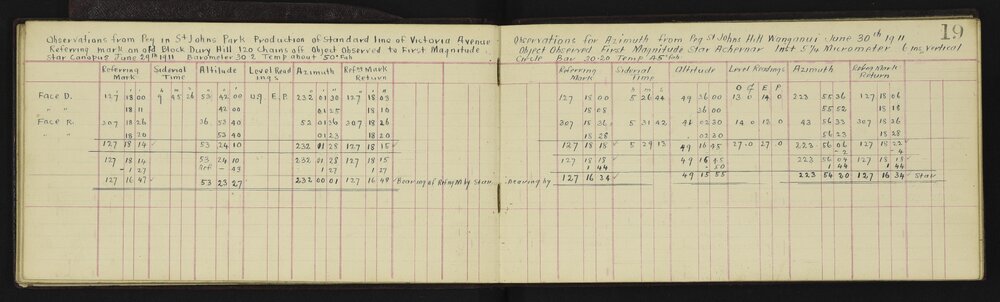 Observations from Peg in St Johns Park Production of Standard line of Victoria Avenue
Referring mark on old Block Dury Hill 120 Chains off Object Observed to First Magnitude
Star Canopus June 29th 1911 Barometer 30.2 Temp about 50° Fah
Referring Mark Siderial Time Altitude Level Readings Azimuth Ref'g Mark Return
Face D. 127 18 00 9 45 26 53 42 00 U.g. E.P. 232 01 30 127 18 03
" " 18 11 42 00 01 25 18 10
Face R. 307 18 26 36 53 40 52 01 36 307 18 26
" " 18 20 53 40 01 23 18 20
127 18 14 53 24 10 232 01 28 127 18 15
127 18 14 53 24 10 232 01 28 127 18 15
- 1 27 Ref - 43 1 27 1 27
127 16 47 53 23 27 232 00 01 127 16 48 Bearing of Ref'ng M by Star
19
Observations for Azimuth from Peg St Johns Hill Wanganui June 30th 1911
Object Observed First Magnitude Star Achernar Inst 5 in Micrometer 6 ins vertical
Circle Bar 30.20 Temp 45° Fah
Referring Mark Siderial Time Altitude Level Readings Azimuth Refng Mark Return
h m s O E P
127 18 00 5 26 44 49 36 00 13.0 14.0 223 55 36 127 18 06
18 08 36 00 55 52 18 18
307 18 36 5 31 42 41 02 30 14.0 13.0 43 56 33 307 18 36
18 28 02 30 56 23 18 28
127 18 18 5 29 13 49 16 45 27.0 27.0 223 56 06 127 18 22
- 2 - 4
127 18 18 49 16 45 223 56 04 127 18 18
1 44 - 50 1 44 1 44
bearing by 127 16 34 49 15 55 223 54 20 127 16 34 Star